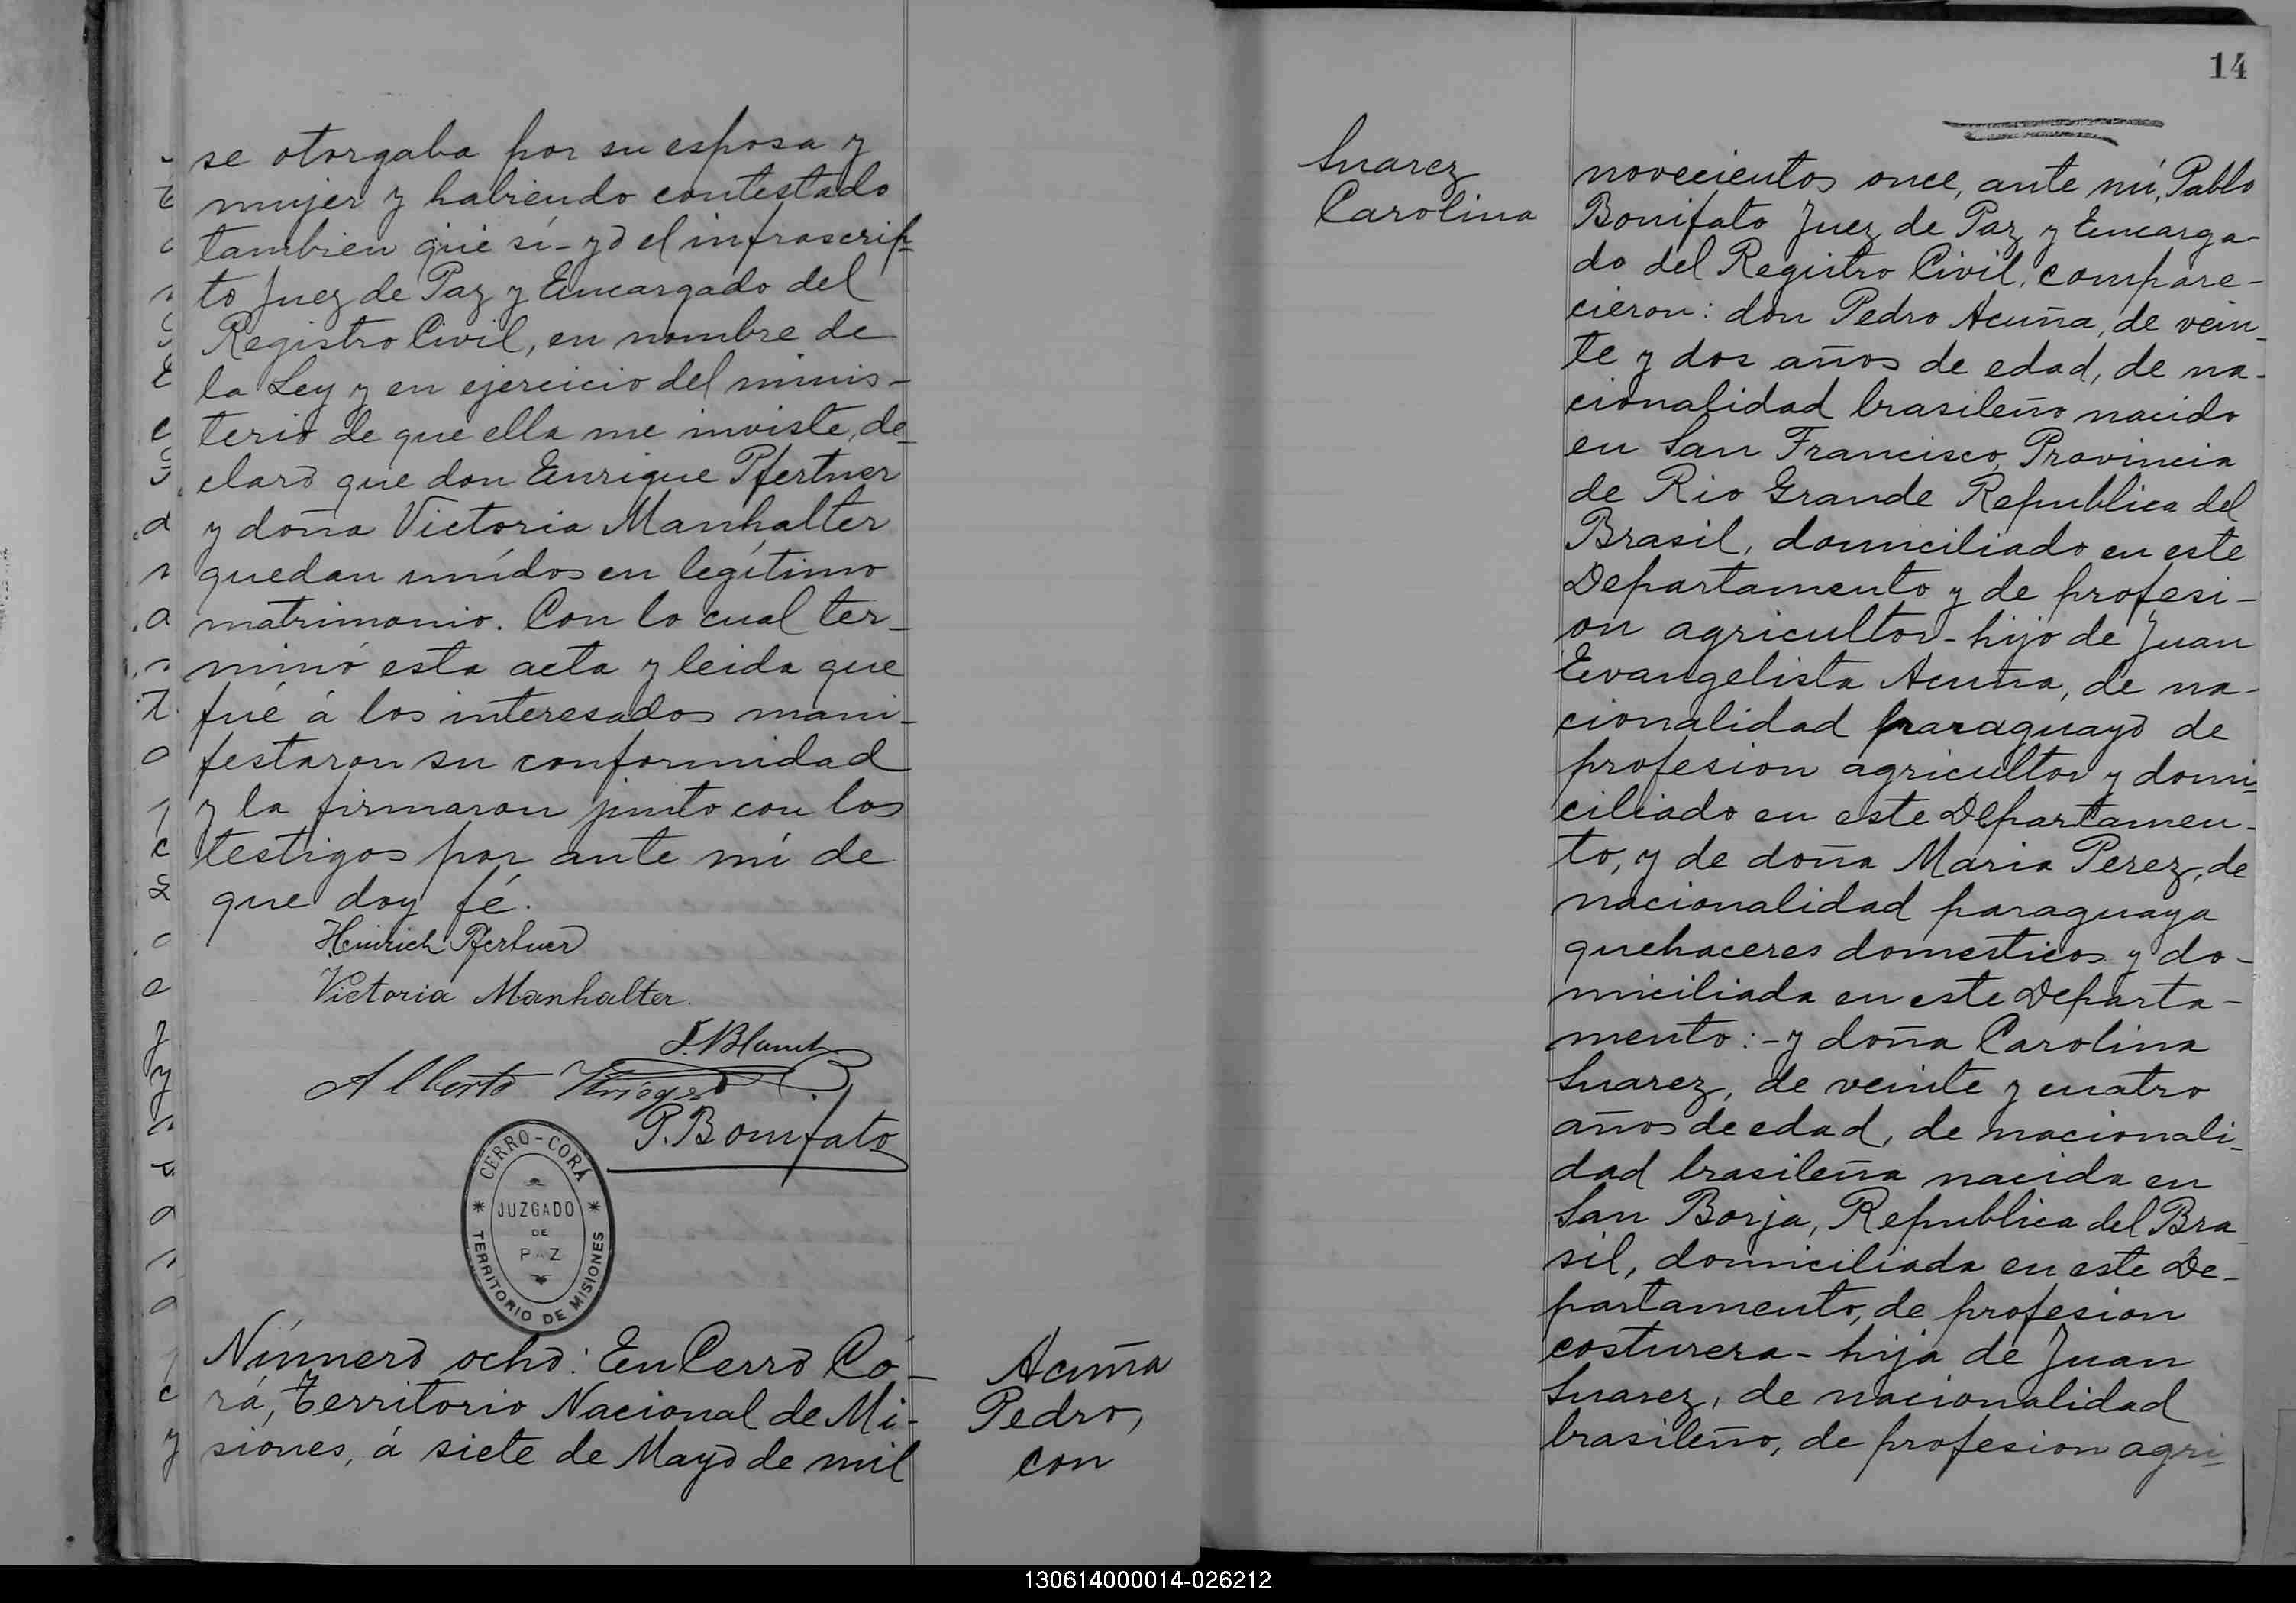 se otorgaba por su esposa y
mujer y habiendo contestado
tambien que sí - yo el infrascrip-
to Juez de Paz y Encargado del
Registro Civil, en nombre de
la Ley y en ejercicio del minis-
terio de que ella me inviste, de-
claro que don Enrique Pfertner
y doña Victoria Manhalter
quedan unídos en legítimo
matrimonio. Con lo cual ter-
minó esta acta y leida que
fué á los interesados mani-
festaron su conformidad
y la firmaron junto con los
testigos por ante mí de
que doy fé.
Heinrich Pfertner
Victoria Manhalter.
Alberto
P. Bonifato
CERRO-CORÁ
JUZGADO
DE
PAZ
TERRITORIO DE MISIONES
Número ocho: En Cerro Co-
rá, Territorio Nacional de Mi-
siones, á siete de Mayo de mil
Acuña
Pedro,
con
14
Suarez
Carolina
novecientos once, ante mí, Pablo
Bonifato Juez de Paz y Encarga-
do del Registro Civil, compare-
cieron: don Pedro Acuña, de vein-
te y dos años de edad, de na-
cionalidad brasileño nacido
en San Francisco, Provincia
de Rio Grande Republica del
Brasil, domiciliado en este
Departamento y de profesi-
on agricultor - hijo de Juan
Evangelista Acuña, de na-
cionalidad paraguayo de
profesion agricultor y domi-
ciliado en este Departamen-
to, y de doña Maria Perez, de
nacionalidad paraguaya
quehaceres domesticos y do-
miciliada en este Departa-
mento: - y doña Carolina
Suarez, de veinte y cuatro
años de edad, de nacionali-
dad brasileña nacida en
San Borja, Republica del Bra
sil, domiciliada en este De-
partamento, de profesion
costurera - hija de Juan
Suarez, de nacionalidad
brasileño, de profesion agri-
130614000014-026212